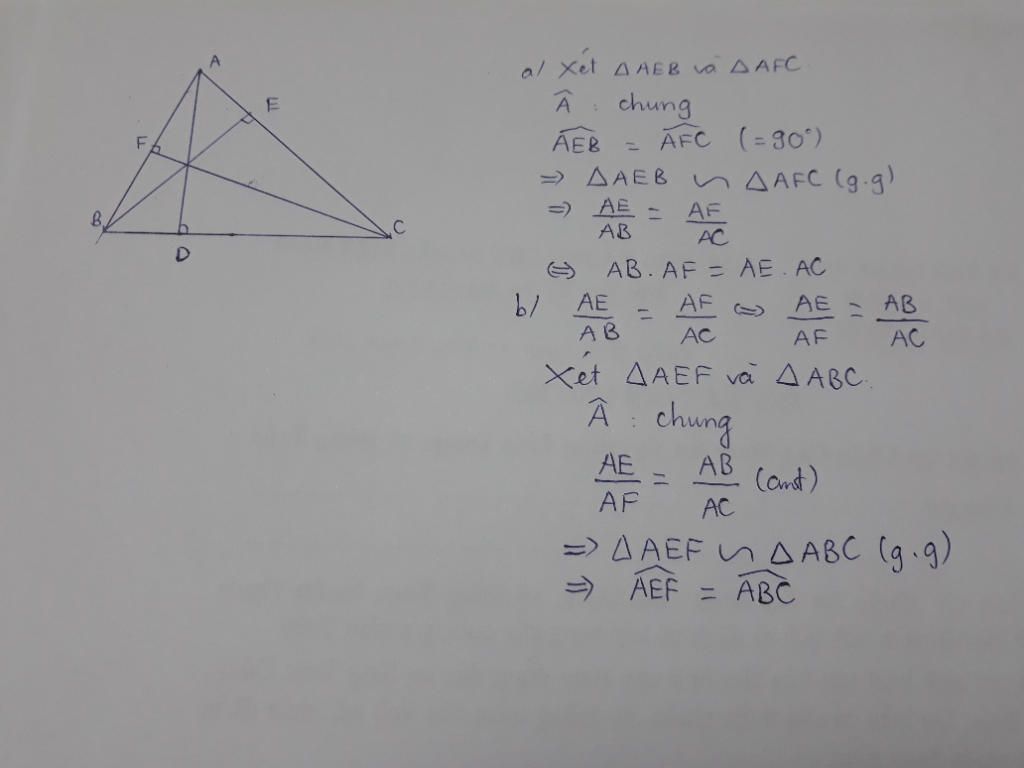 A
E
F
B
C
D
a/ Xét ΔAEB và ΔAFC.
Â : chung
\widehat{AEB} = \widehat{AFC} (=90°)
=> ΔAEB ∽ ΔAFC (g.g)
=> \frac{AE}{AB} = \frac{AF}{AC}
<=> AB.AF = AE.AC
b/ \frac{AE}{AB} = \frac{AF}{AC} <=> \frac{AE}{AF} = \frac{AB}{AC}
Xét ΔAEF và ΔABC.
Â : chung
\frac{AE}{AF} = \frac{AB}{AC} (cmt)
=> ΔAEF ∽ ΔABC (g.g)
=> \widehat{AEF} = \widehat{ABC}